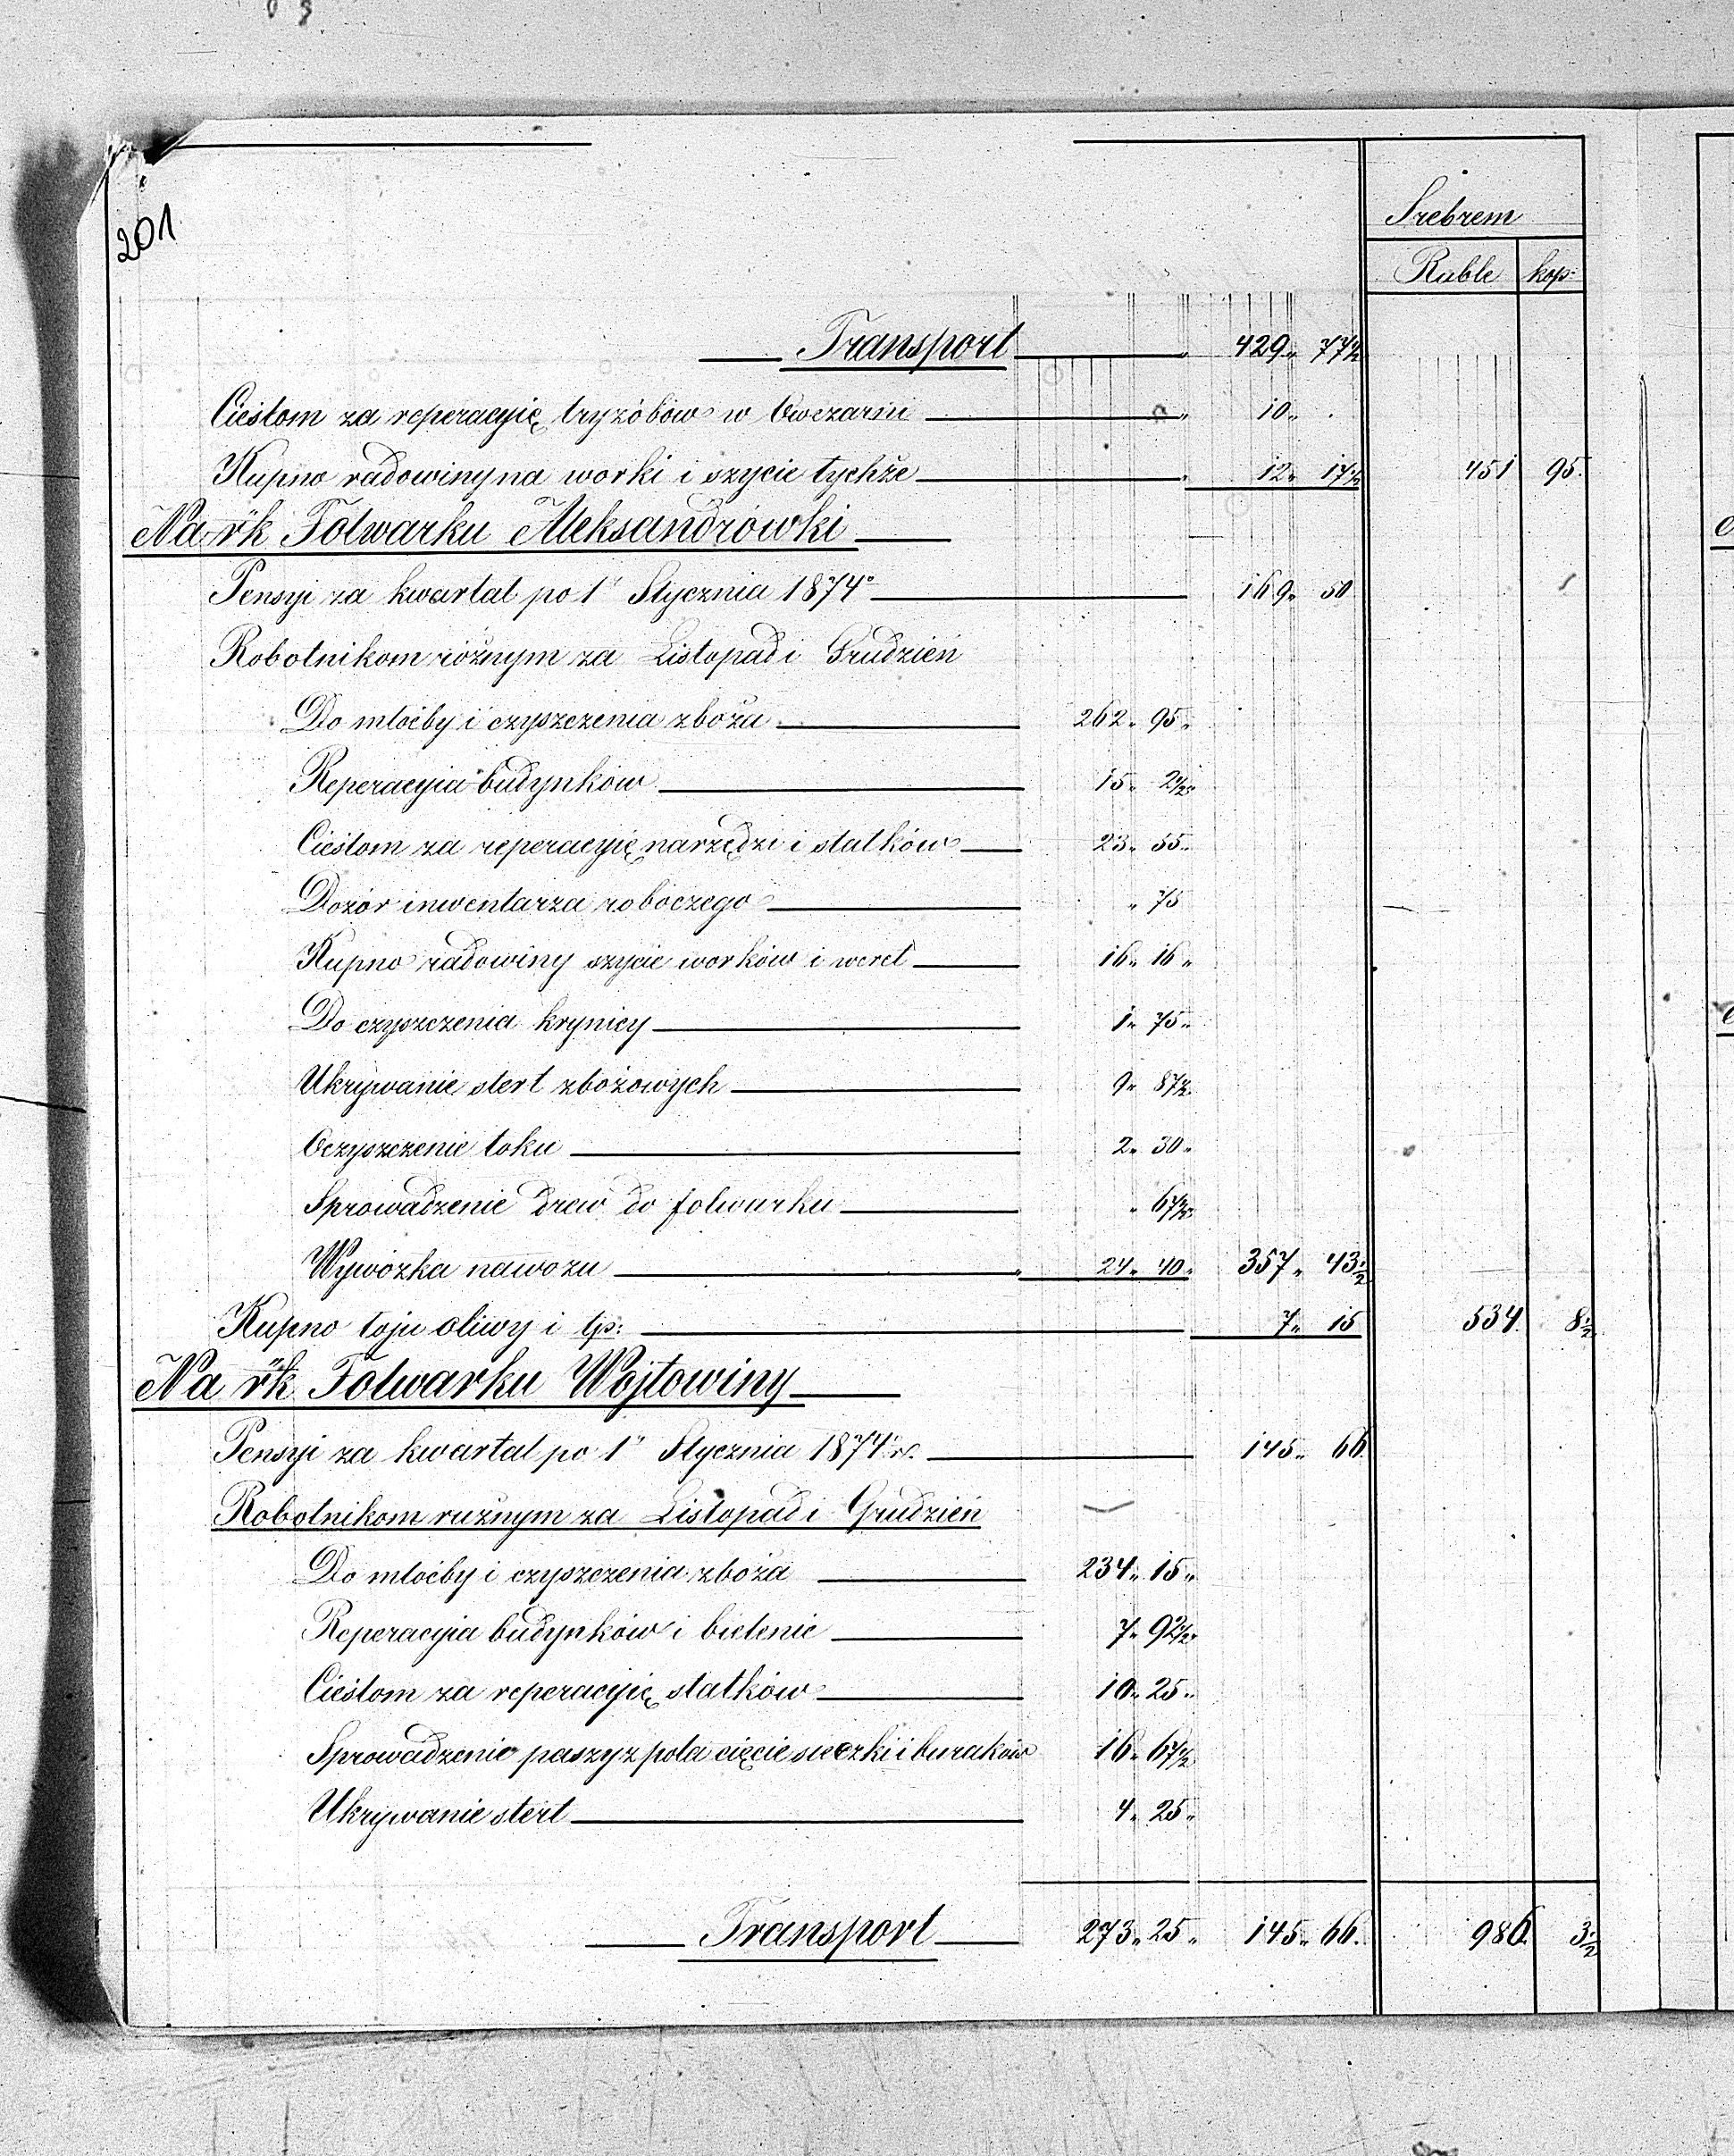 201
Srebrem
Ruble kop:
Transport " 429 " 77 1/2
Cieślom za reperacyię tryżóbów w Owczarni " 10 " .
Kupno radowiny na worki i szycie tychże " 12 " 17 1/2 451 95.
Na rk Folwarku Aleksandrówki
Pensyi za kwartal po 1" Stycznia 1874° 169 " 50
Robotnikom różnym za Listopad i Grudzień
Do młoćby i czyszczenia zboża 262 " 95 "
Reperacyia budynków 15 " 2 1/2 "
Cieślom za reperacyię narzędzi i statków 23 " 55 "
Dozór inwentarza roboczego " 75
Kupno radowiny szycie worków i weret 16 " 16 "
Do czyszczenia krynicy 1 " 75 "
Ukrywanie stert zbożowych 9 " 87 1/2
Oczyszczenie toku 2 " 30 "
Sprowadzenie drew do folwarku " 67 1/2 "
Wywózka nawozu " 24 " 40 " 357 " 43 1/2
Kupno łoju oliwy i tp: 7 " 15 534 8 1/2
Na rk Folwarku Wojtowiny
Pensyi za kwartal po 1" Stycznia 1874 r. 145 " 66
Robotnikom rużnym za Listopad i Grudzień
Do młoćby i czyszczenia zboża 234 " 15 "
Reperacyia budynków i bielenie 7 " 92 1/2 "
Cieślom za reperacyię statków 10 " 25 "
Sprowadzenie paszy z pola cięcie sieczki i buraków 16 " 67 1/2
Ukrywanie stert 4 " 25 "
Transport 273 " 25 " 145 " 66. 986 3 1/2